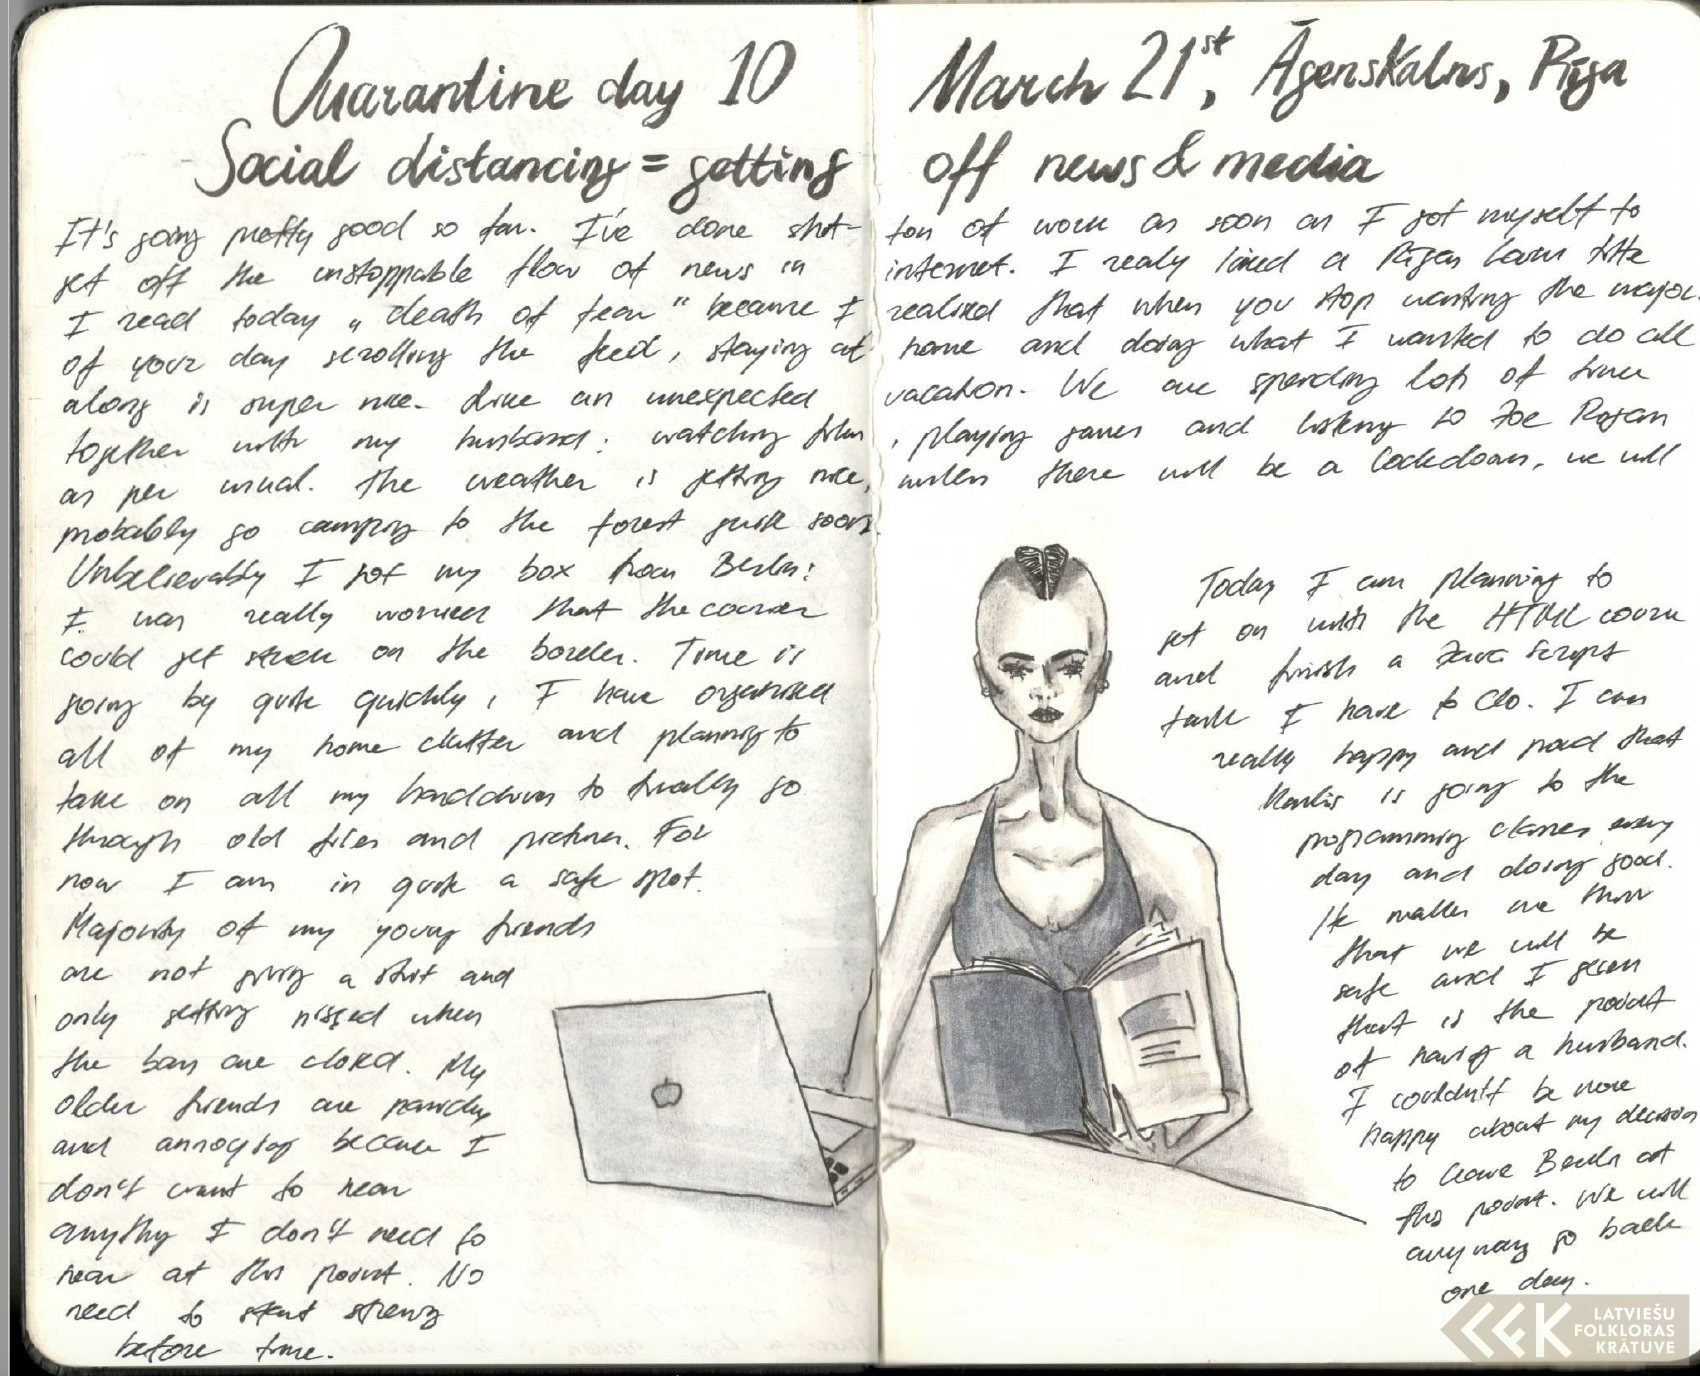 Quarantine day 10 March 21st, Āgenskalns, Rīga
Social distancing = getting off news & media
It's going pretty good so far. I've done shit-ton of work as soon as I got myself to
get off the unstoppable flow of news in internet. I realy liked a Rīgas Laiks title
I read today „death of fear" because I realised that when you stop wasting the major.
of your day scrolling the feed, staying at home and doing what I wanted to do all
along is super nice. Like an unexpected vacation. We are spending lots of time
together with my husband: watching films, playing games and listening to Joe Rogan
as per usual. The weather is getting nice, unless there will be a Lockdown, we will
probably go camping to the forest quite soon.
Unbelievably I got my box from Berlin:
I was really worried that the courier
could get stuck on the border. Time is
going by quite quickly, I have organised
all of my home clutter and planning to
take on all my harddrives to finally go
through old files and pictures. For
now I am in quite a safe spot.
Majority of my young friends
are not giving a shit and
only getting pissed when
the bars are closed. My
older friends are panicky
and annoying because I
don't want to hear
anything I don't need to
hear at this point. No
need to start stressing
before time.
Today I am planning to
get on with the HTML course
and finish a Java Script
task I have to do. I am
really happy and proud that
Kārlis is going to the
programming classes every
day and doing good.
He makes me think
that we will be
safe and I guess
that is the point
of having a husband.
I couldn't be more
happy about my decision
to leave Berlin at
this point. We will
anyway go back
one day.
LATVIEŠU
FOLKLORAS
KRĀTUVE